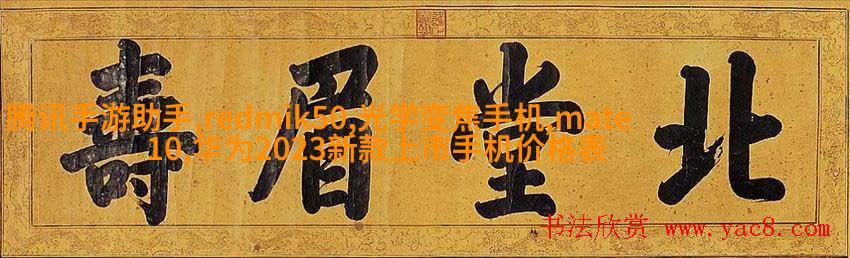 北堂眉壽
腾讯手游助手,redmik50,光学变焦手机,mate
10,华为2023新款上市手机价格表
书法欣赏 www.yac8.com